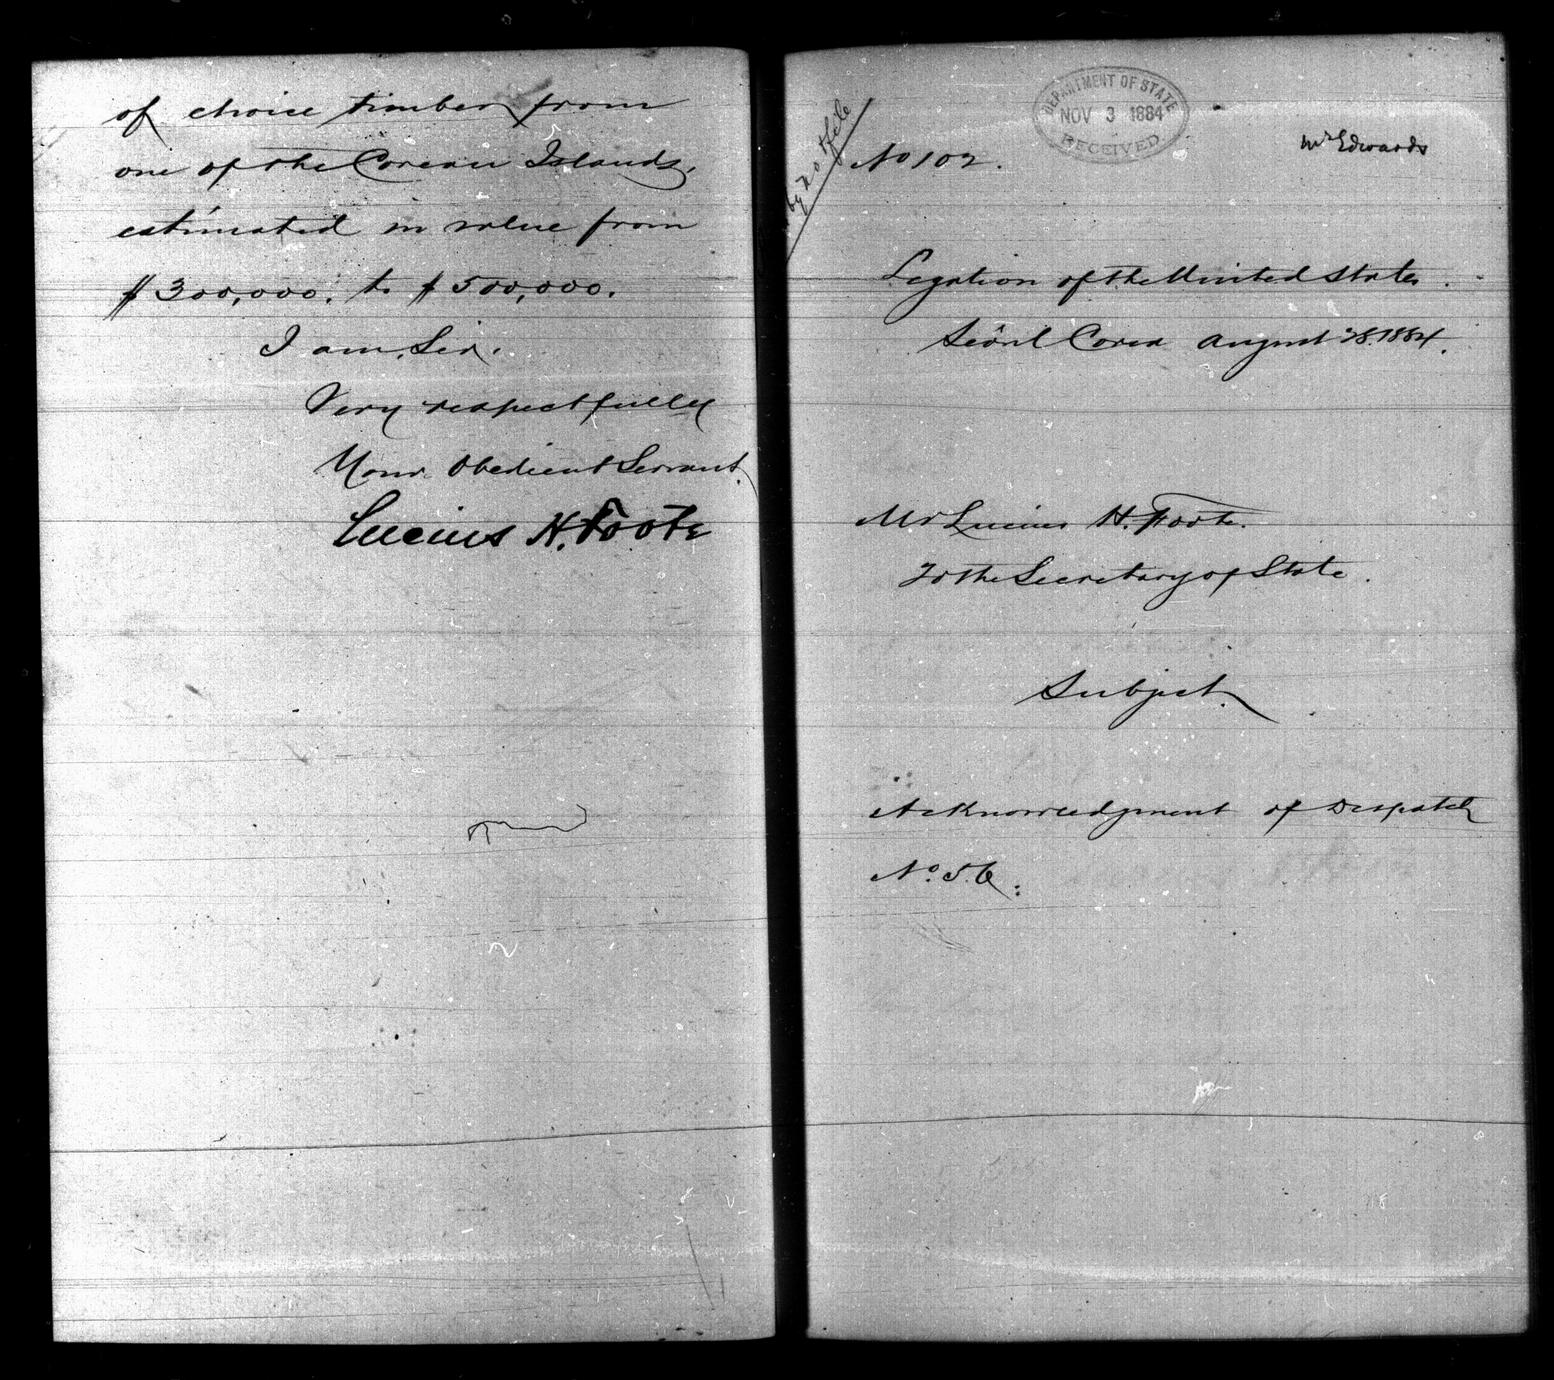 of choice timber from
one of the Corean Islands,
estimated in value from
$300,000. to $500,000.
I am, Sir.
Very respectfully
Your Obedient Servant.
Lucius H. Foote
DEPARTMENT OF STATE
NOV 3 1884
RECEIVED
Mr Edwards
No 102.
Legation of the United States.
Seôul Corea August 28. 1884.
Mr Lucius H. Foote.
To the Secretary of State.
Subject.
Acknowledgment of Despatch
No. 56.